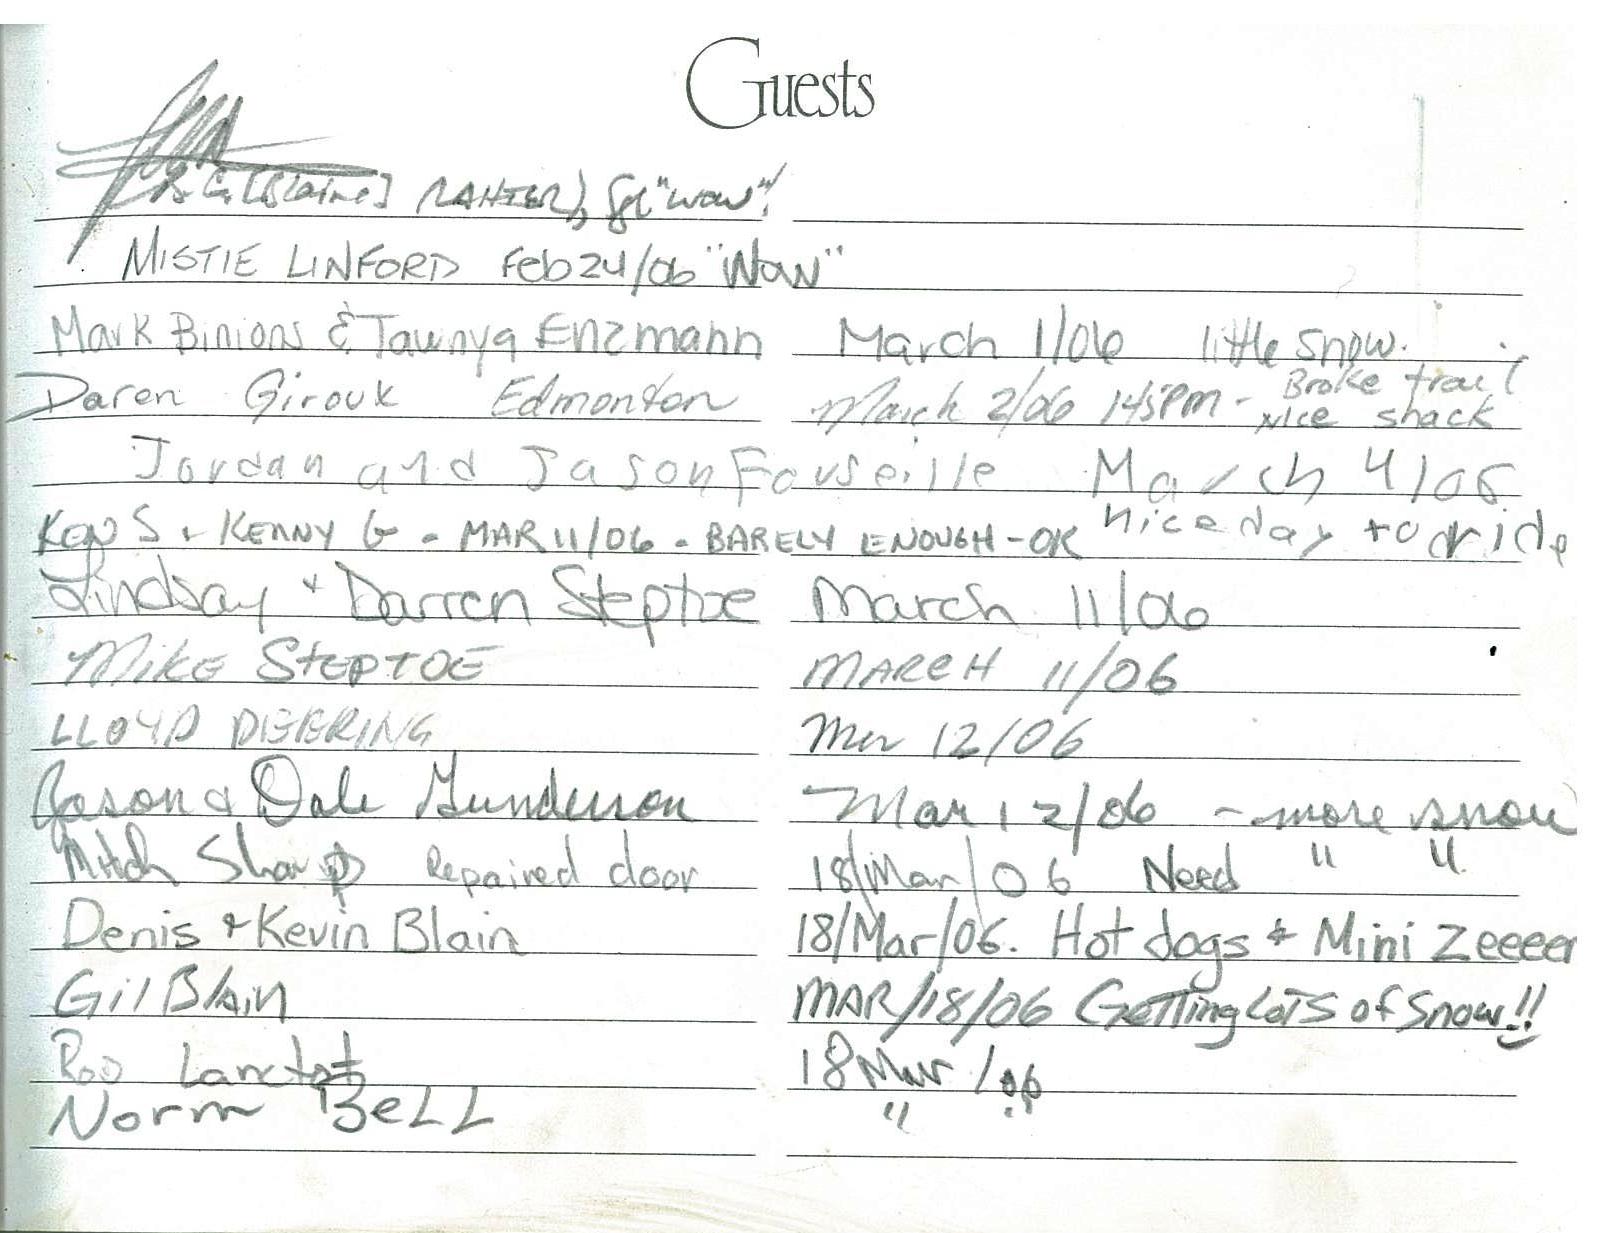 Guests
[Blaine] RAHIER, Sgt "wow"!
MISTIE LINFORD Feb 24/06 "Wow"
Mark Binions & Tawnya Enzmann March 1/06 little snow.
Daren Giroux Edmonton March 2/06 145PM - Broke trail
Nice shack
Jordan and Jason Fourseille March 4/06
nice day to ride
Ken S + KENNY G - MAR 11/06 - BARELY ENOUGH - OK
Lindsay + Darren Steptoe March 11/06
MIKE STEPTOE MARCH 11/06
LLOYD DEERING Mar 12/06
Jason & Dale Gunderson Mar 12/06 - more snow
Mitch Sharp Repaired door 18/Mar/06 Need " "
Denis + Kevin Blain 18/Mar/06. Hot dogs + Mini Zeeeer
Gil Blain MAR/18/06 Getting LOTS of Snow!!
Lanctot 18 Mar /06
Norm BeLL " "